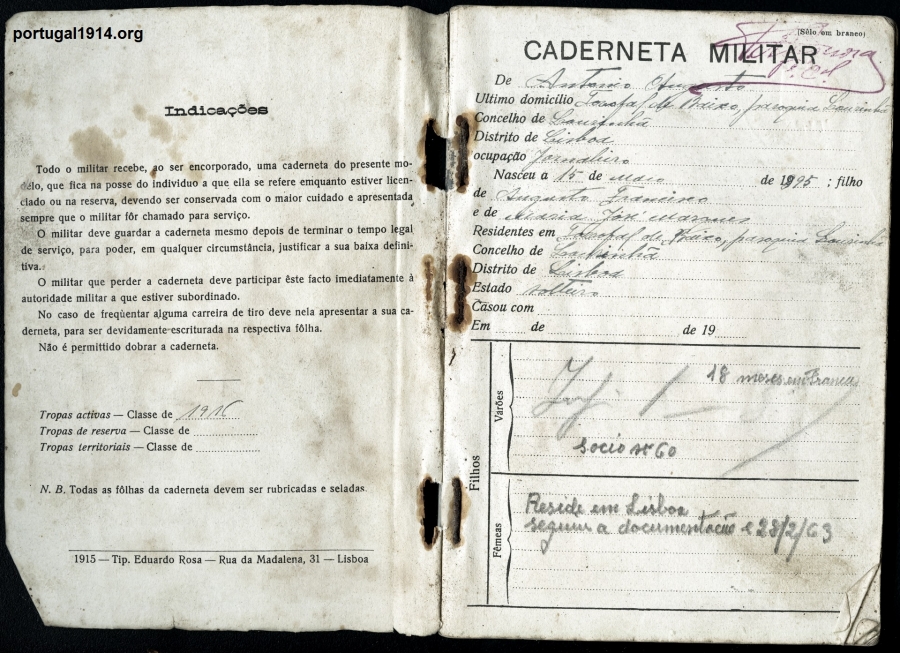 portugal1914.org
Indicações
Todo o militar recebe, ao ser encorporado, uma caderneta do presente mo-
dêlo, que fica na posse do individuo a que ela se refere emquanto estiver licen-
ciado ou na reserva, devendo ser conservada com o maior cuidado e apresentada
sempre que o militar fôr chamado para serviço.
O militar deve guardar a caderneta mesmo depois de terminar o tempo legal
de serviço, para poder, em qualquer circumstância, justificar a sua baixa defini-
tiva.
O militar que perder a caderneta deve participar êste facto imediatamente à
autoridade militar a que estiver subordinado.
No caso de freqüentar alguma carreira de tiro deve nela apresentar a sua ca-
derneta, para ser devidamente escriturada na respectiva fôlha.
Não é permittido dobrar a caderneta.
Tropas activas — Classe de 1916
Tropas de reserva — Classe de
Tropas territoriais — Classe de
N. B. Todas as fôlhas da caderneta devem ser rubricadas e seladas.
1915 — Tip. Eduardo Rosa — Rua da Madalena, 31 — Lisboa
(Sêlo em branco)
CADERNETA MILITAR
De Antonio Augusto
Ultimo domicílio de Baixo, paroquia Lourinhã
Concelho de Lourinhã
Distrito de Lisboa
ocupação Jornaleiro
Nasceu a 15 de Maio de 1895 ; filho
de Augusto Francisco
e de Maria José Marques
Residentes em de Baixo, paroquia Lourinhã
Concelho de Lourinhã
Distrito de Lisboa
Estado solteiro
Casou com
Em de de 19
Filhos
Varões
18 meses em França
Socio nº 60
Fêmeas
Reside em Lisboa
seguiu a documentação e 28/2/63